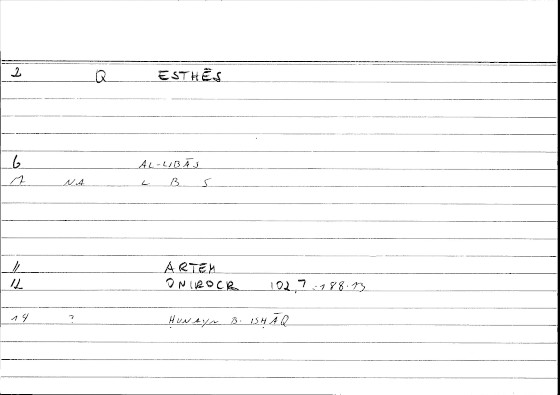 2 Q ESTHĒS
6 AL-LIBĀS
7 NA L B S
11 ARTEM
12 ONIROCR 102,7 : 188.13
14 ? ḤUNAYN B. ISḤĀQ